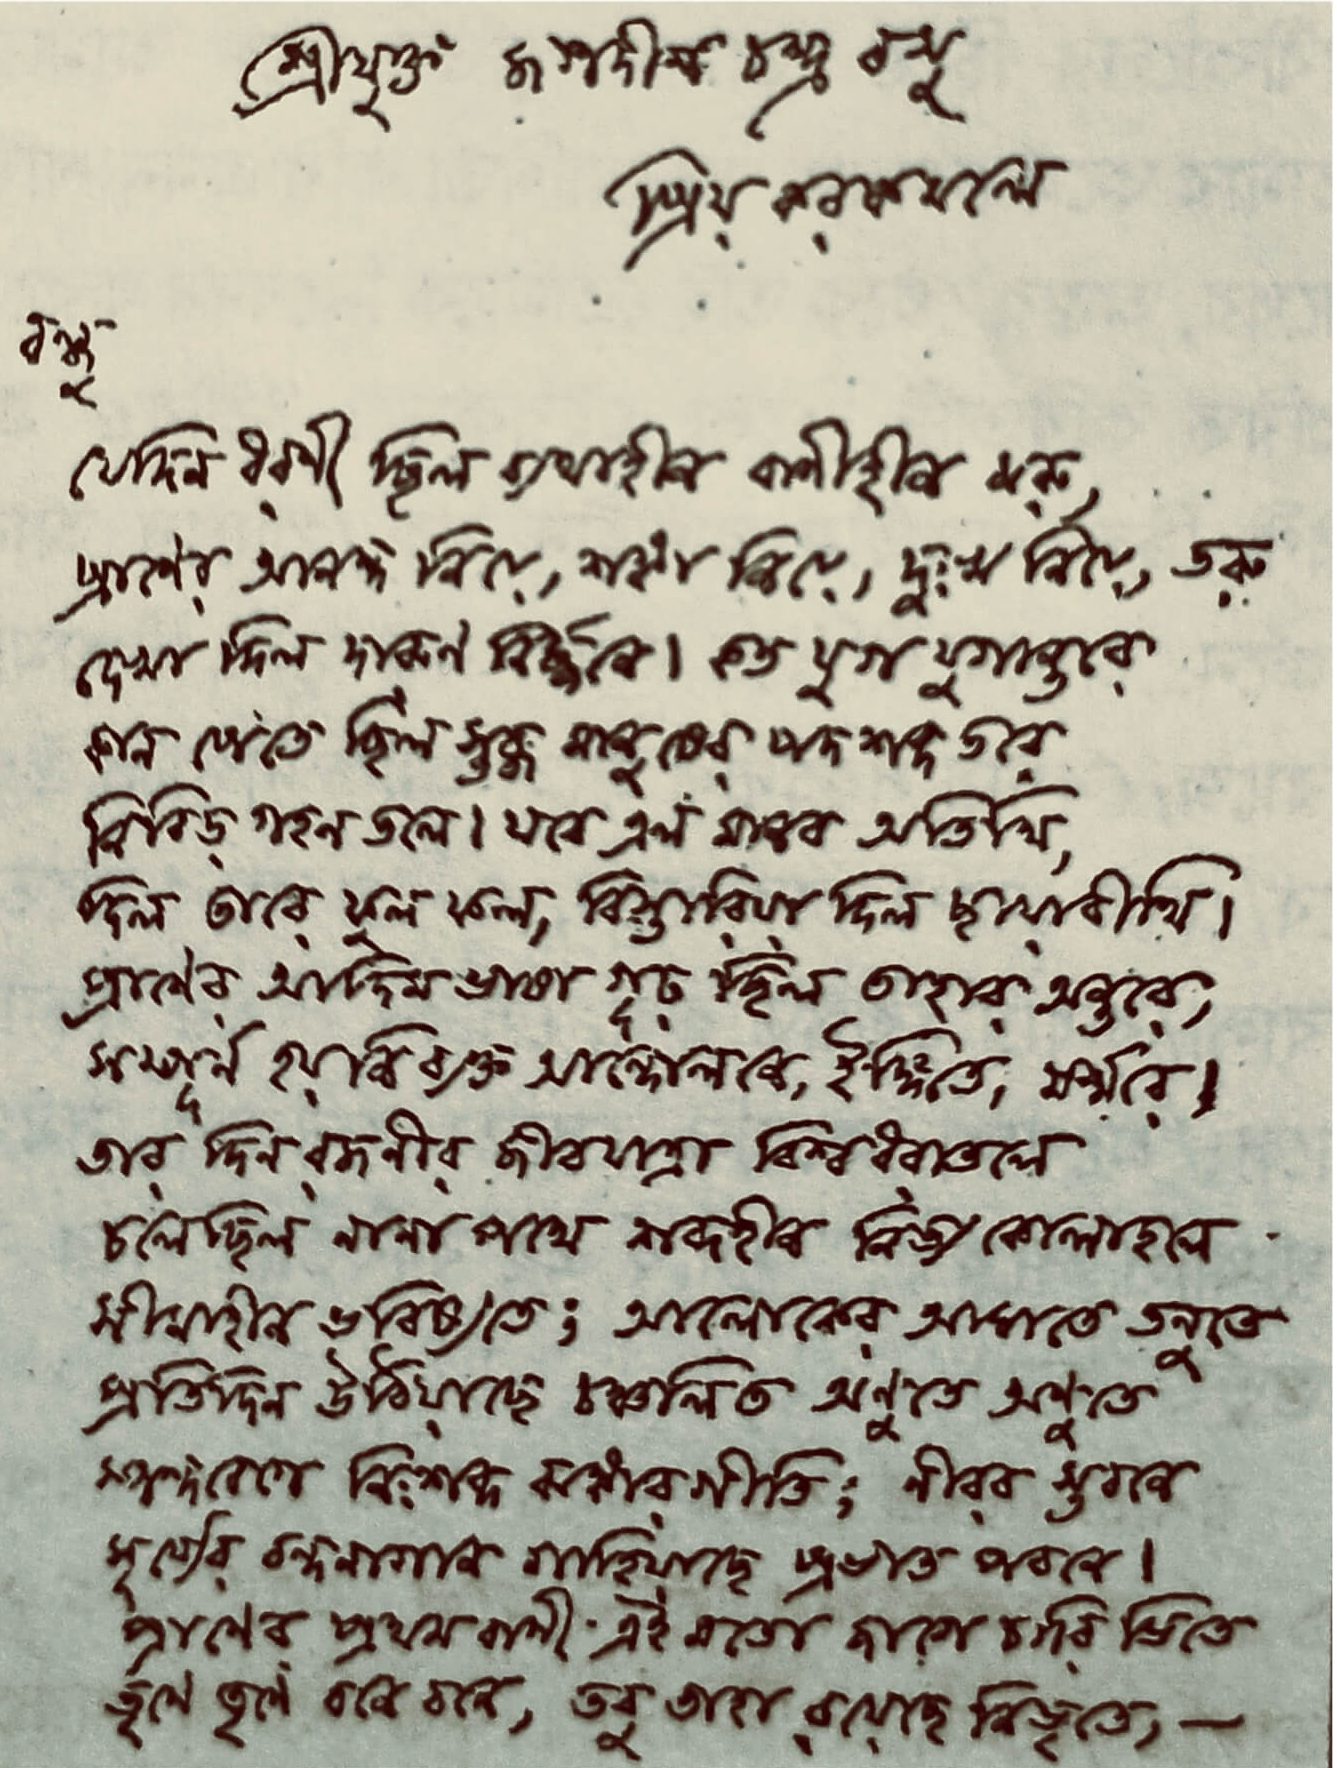 শ্রীযুক্ত জগদীশ চন্দ্র বসু
প্রিয় করকমলে
বন্ধু
যেদিন ধরণী ছিল ব্যথাহীন বাণীহীন মরু,
প্রাণের আনন্দ নিয়ে, শঙ্কা নিয়ে, দুঃখ নিয়ে, তরু
দেখা দিল দারুণ নির্জ্জনে। কত যুগ যুগান্তরে
কান পেতে ছিল স্তব্ধ মানুষের পদশব্দ তরে
নিবিড় গহন তলে। যবে এল মানব অতিথি,
দিল তারে ফুল ফল, বিস্তারিয়া দিল ছায়াবীথি।
প্রাণের আদিম ভাষা গূঢ় ছিল তাহার অন্তরে,
সম্পূর্ণ হয়নি ব্যক্ত আন্দোলনে, ইঙ্গিতে, মর্ম্মরে।
তার দিন রজনীর জীবযাত্রা বিশ্ব ধরাতলে
চলেছিল নানা পথে শব্দহীন নিত্য কোলাহলে
সীমাহীন ভবিষ্যতে; আলোকের আঘাতে তনুতে
প্রতিদিন উঠিয়াছে চঞ্চলিত অণুতে অণুতে
স্পন্দবেগে নিঃশব্দ ঝঙ্কার গীতি; নীরব স্তবনে
সূর্য্যের বন্দনাগান গাহিয়াছে প্রভাত পবনে।
প্রাণের প্রথম বাণী এই মতো জাগে চারি ভিতে
তৃণে তৃণে বনে বনে, তবু তাহা রয়েছে নিভৃতে, —